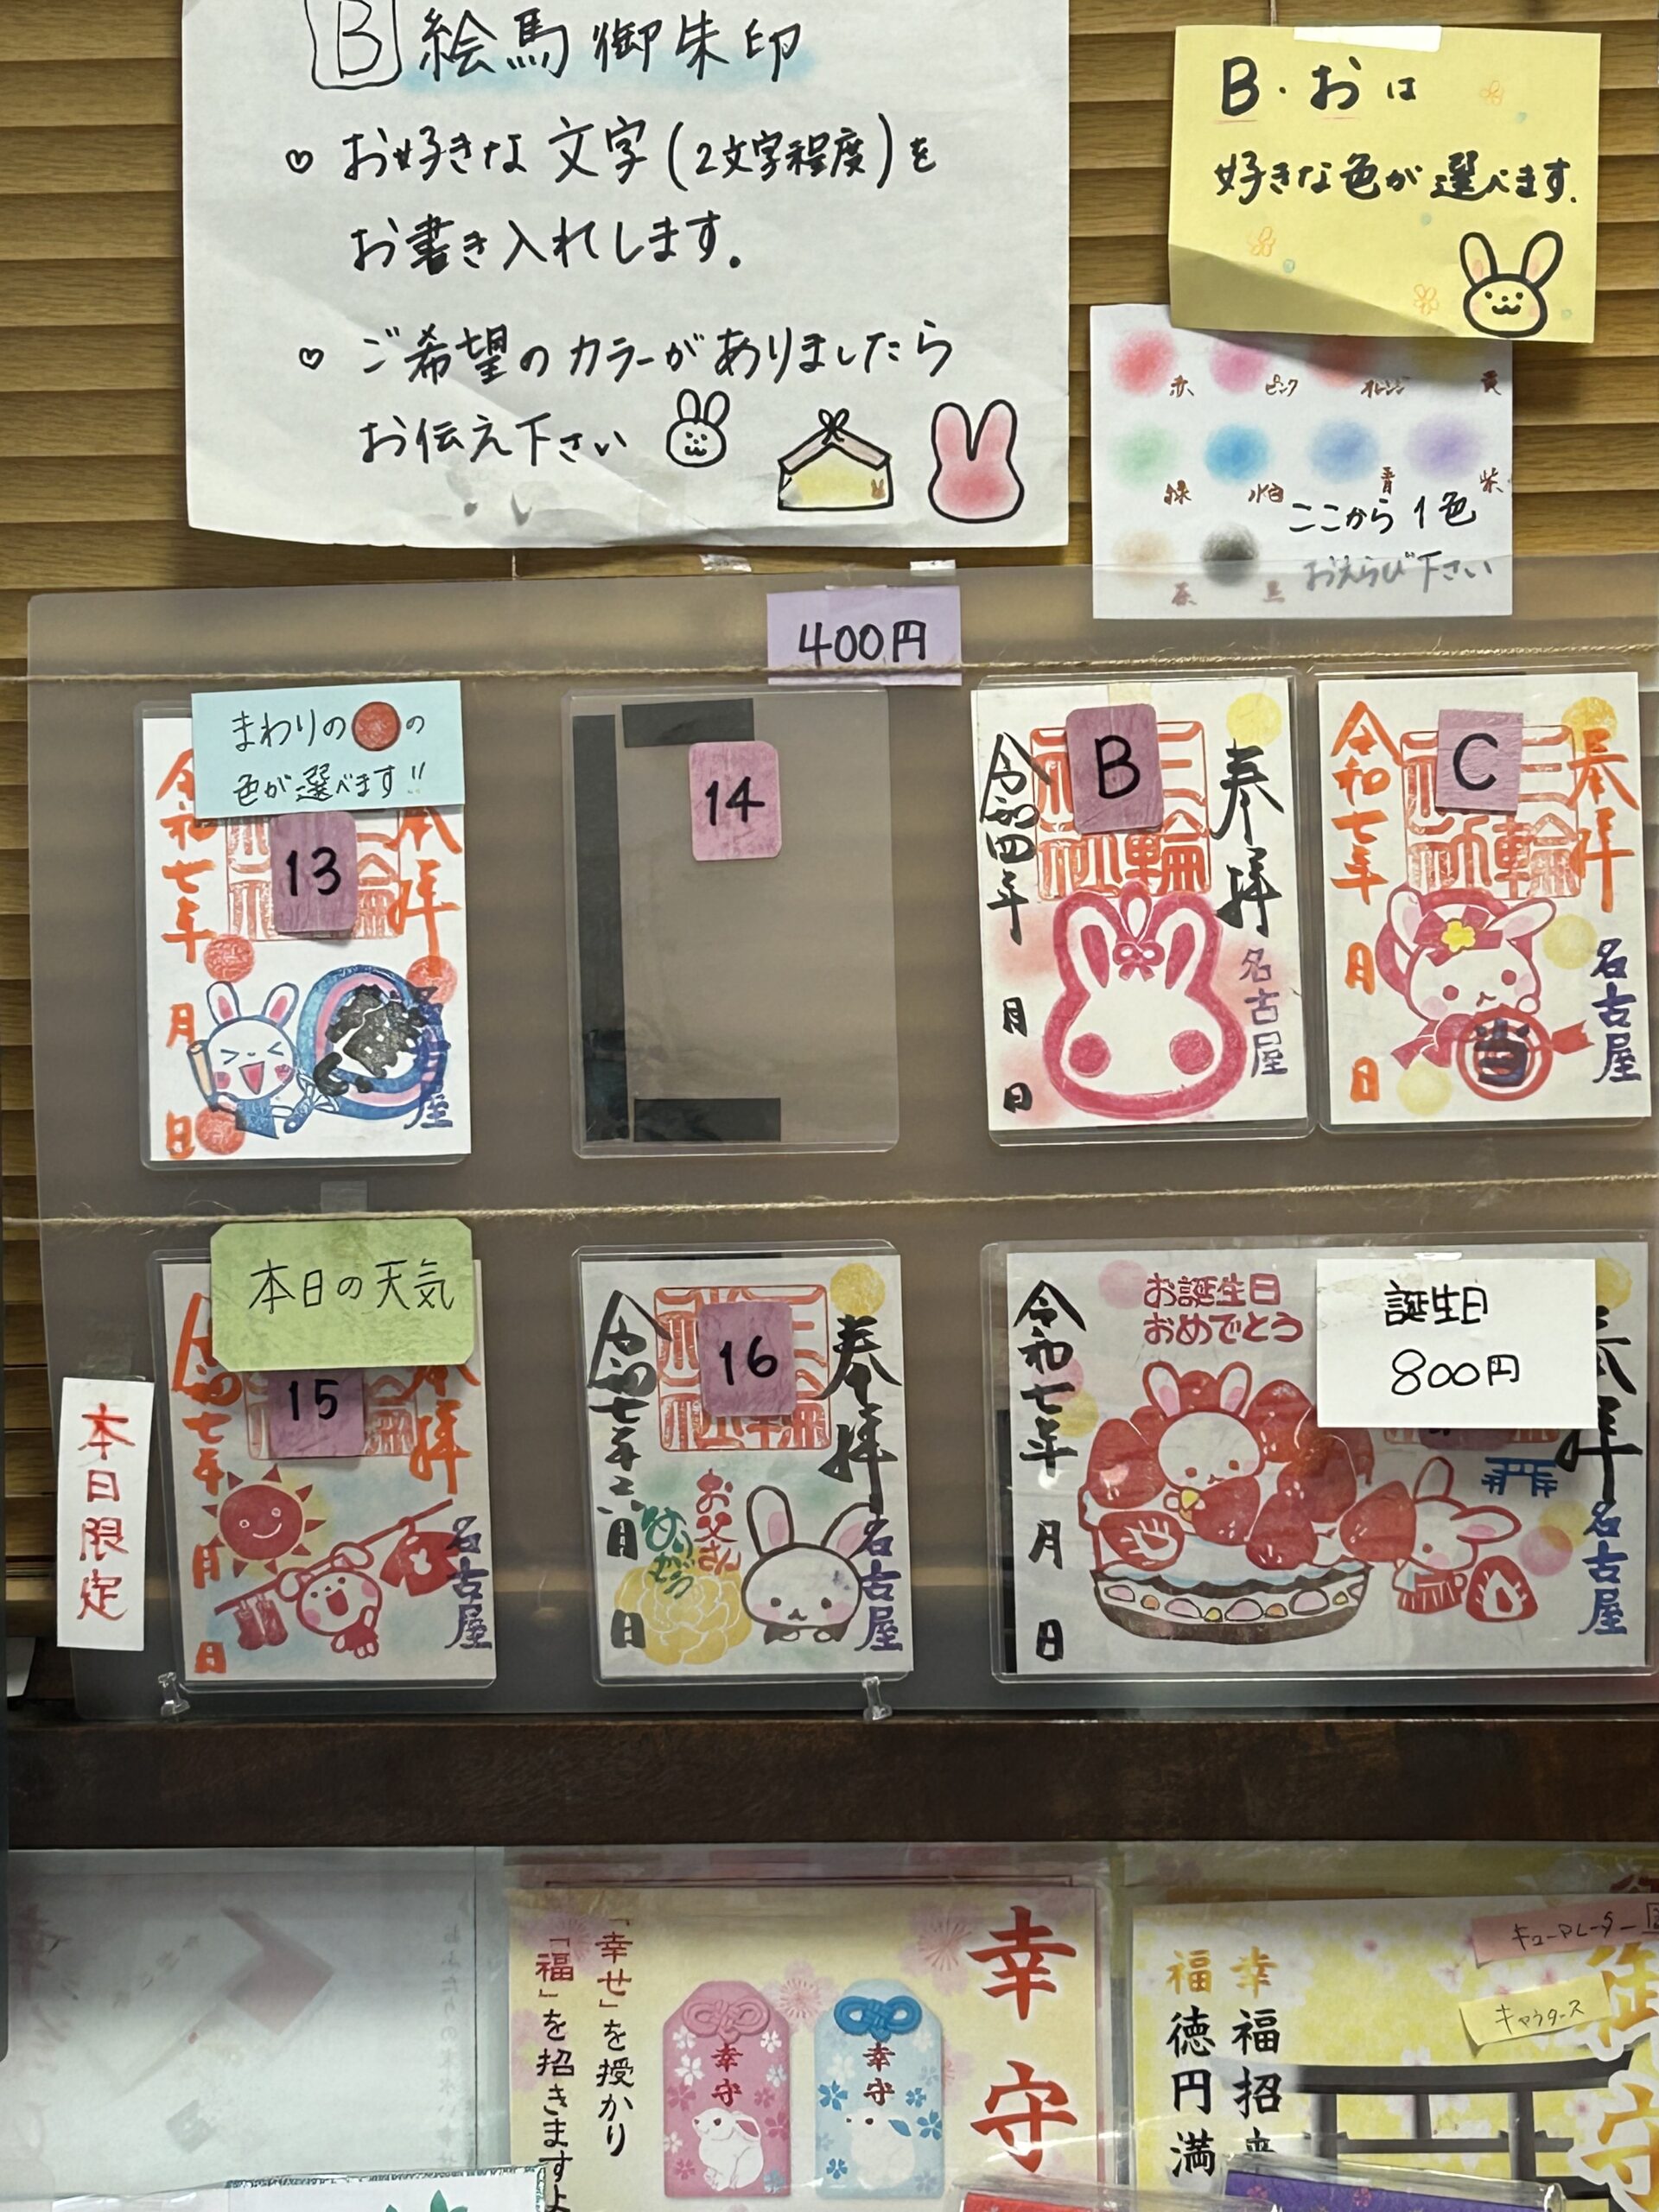 B 絵馬御朱印
♡ お好きな文字(2文字程度)を
お書き入れします.
♡ ご希望のカラーがありましたら
お伝え下さい
B・おは
好きな色が選べます.
赤 ピンク オレンジ 黄
緑 水色 青 紫
ここから1色
おえらび下さい
茶 黒
400円
まわりの●の
色が選べます!!
13
奉拝
令和七年 月 日
14
B
奉拝
三輪
名古屋
令和四年 月 日
C
奉拝
三輪
名古屋
令和七年 月 日
当
本日限定
本日の天気
15
奉拝
名古屋
令和七年 月 日
16
奉拝
名古屋
お父さん
ありがとう
令和七年六月 日
誕生日
800円
お誕生日
おめでとう
奉拝
名古屋
令和七年 月 日
幸守
「幸せ」を授かり
「福」を招きますよ
幸守
幸守
キューアレーター
キャウタース
幸福招来
福徳円満
御守